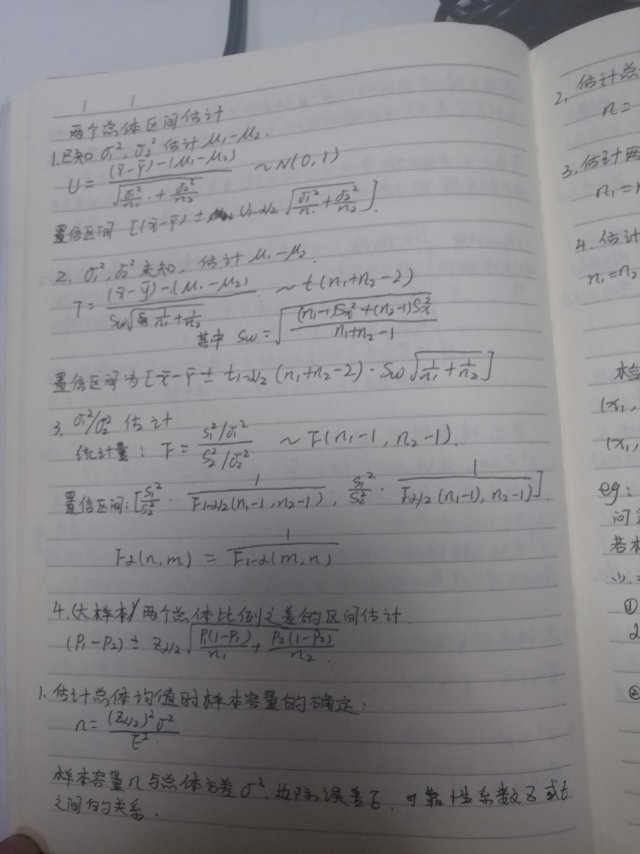 两个总体区间估计
1.已知 σ₁², σ₂² 估计 μ₁-μ₂.
U = \frac{(x̄-ȳ)-(μ₁-μ₂)}{\sqrt{\frac{σ₁²}{n₁}+\frac{σ₂²}{n₂}}} ~ N(0,1)
置信区间 [(x̄-ȳ) ± U_{1-α/2} \sqrt{\frac{σ₁²}{n₁}+\frac{σ₂²}{n₂}}].
2. σ₁², σ₂² 未知, 估计 μ₁-μ₂.
T = \frac{(x̄-ȳ)-(μ₁-μ₂)}{Sω\sqrt{\frac{1}{n₁}+\frac{1}{n₂}}} ~ t(n₁+n₂-2)
其中 Sω = \sqrt{\frac{(n₁-1)S₁²+(n₂-1)S₂²}{n₁+n₂-1}}
置信区间为 [x̄-ȳ ± t_{1-α/2} (n₁+n₂-2)·Sω\sqrt{\frac{1}{n₁}+\frac{1}{n₂}}]
3. σ₁²/σ₂² 估计
统计量: F = \frac{S₁²/σ₁²}{S₂²/σ₂²} ~ F(n₁-1, n₂-1).
置信区间: [\frac{S₁²}{S₂²}·\frac{1}{F_{1-α/2}(n₁-1,n₂-1)}, \frac{S₁²}{S₂²}·\frac{1}{F_{α/2}(n₁-1),n₂-1)}].
F_α(n,m) = \frac{1}{F_{1-α}(m,n)}
4.(大样本)两个总体比例之差的区间估计.
(P₁-P₂) ± Z_{α/2}\sqrt{\frac{P₁(1-P₁)}{n₁}+\frac{P₂(1-P₂)}{n₂}}
1.估计总体均值时样本容量的确定:
n = \frac{(Z_{α/2})²σ²}{E²}.
样本容量n与总体方差σ², 边际误差E, 可靠性系数Z或t
之间的关系.
2. 估计总
n =
3. 估计两
n₁=
4. 估计
n₁=n₂
(x₁,
(x₁,
eg:
若
①
②